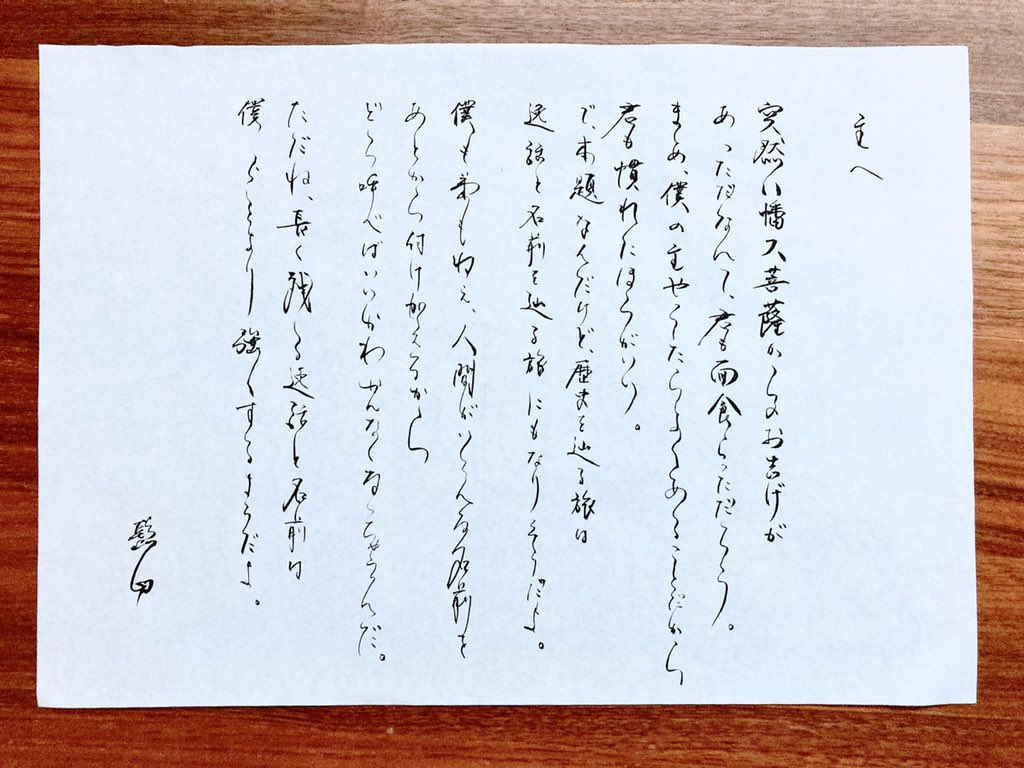 主へ
突然八幡大菩薩からのお告げが
あっただなんて、君も面食らっただろう。
まぁ、僕の主やってたらよくあることだから
君も慣れたほうがいい。
で、本題なんだけど、歴史を辿る旅は
逸話と名前を辿る旅にもなりそうだよ。
僕も弟もねぇ、人間がいろんな名前を
あとから付けかえるから
どう呼べばいいかわかんなくなっちゃうんだ。
ただね、長く残る逸話と名前は
僕らをより強くするようだよ。
髭切